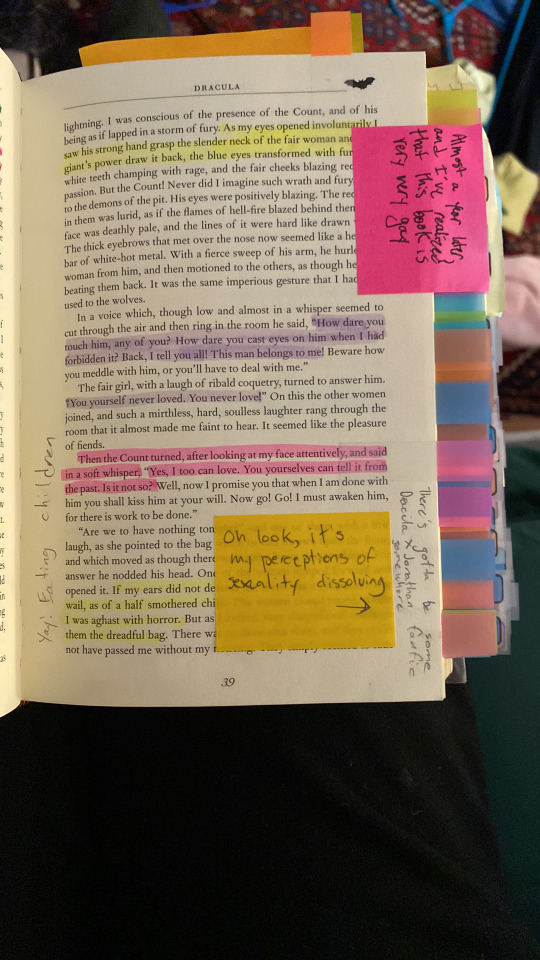 DRACULA
lightning. I was conscious of the presence of the Count, and of his
being as if lapped in a storm of fury. As my eyes opened involuntarily I
saw his strong hand grasp the slender neck of the fair woman and
giant's power draw it back, the blue eyes transformed with
white teeth champing with rage, and the fair cheeks blazing
passion. But the Count! Never did I imagine such wrath and fury,
to the demons of the pit. His eyes were positively blazing. The
in them was lurid, as if the flames of hell-fire blazed behind
face was deathly pale, and the lines of it were hard like drawn
The thick eyebrows that met over the nose now seemed like a
bar of white-hot metal. With a fierce sweep of his arm, he
woman from him, and then motioned to the others, as though he
beating them back. It was the same imperious gesture that I had
used to the wolves.
In a voice which, though low and almost in a whisper seemed to
cut through the air and then ring in the room he said, "How dare you
touch him, any of you? How dare you cast eyes on him when I had
forbidden it? Back, I tell you all! This man belongs to me! Beware how
you meddle with him, or you'll have to deal with me."
The fair girl, with a laugh of ribald coquetry, turned to answer him.
"You yourself never loved. You never love!" On this the other women
joined, and such a mirthless, hard, soulless laughter rang through the
room that it almost made me faint to hear. It seemed like the pleasure
of fiends.
Then the Count turned, after looking at my face attentively, and said
in a soft whisper, "Yes, I too can love. You yourselves can tell it from
the past. Is it not so? Well, now I promise you that when I am done with
him you shall kiss him at your will. Now go! Go! I must awaken him,
for there is work to be done."
"Are we to have nothing
laugh, as she pointed to the bag
and which moved as though there
answer he nodded his head. One
opened it. If my ears did not
wail, as of a half smothered
I was aghast with horror. But as
them the dreadful bag. There
not have passed me without my
39
Almost a year later
and I've realized
that this book is
very very gay
Oh look, it's
my perceptions of
sexuality dissolving
→
There's gotta be some
Dracula x Jonathan fanfic
somewhere
Yay! Eating children